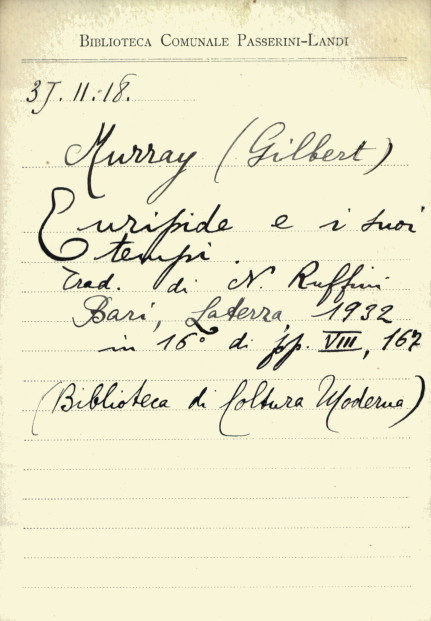 BIBLIOTECA COMUNALE PASSERINI-LANDI
3J.II.18.
Murray (Gilbert)
Euripide e i suoi
tempi.
Trad. di N. Ruffini
Bari, Laterza, 1932
in 16° di pp. VIII, 167
(Biblioteca di Coltura Moderna)